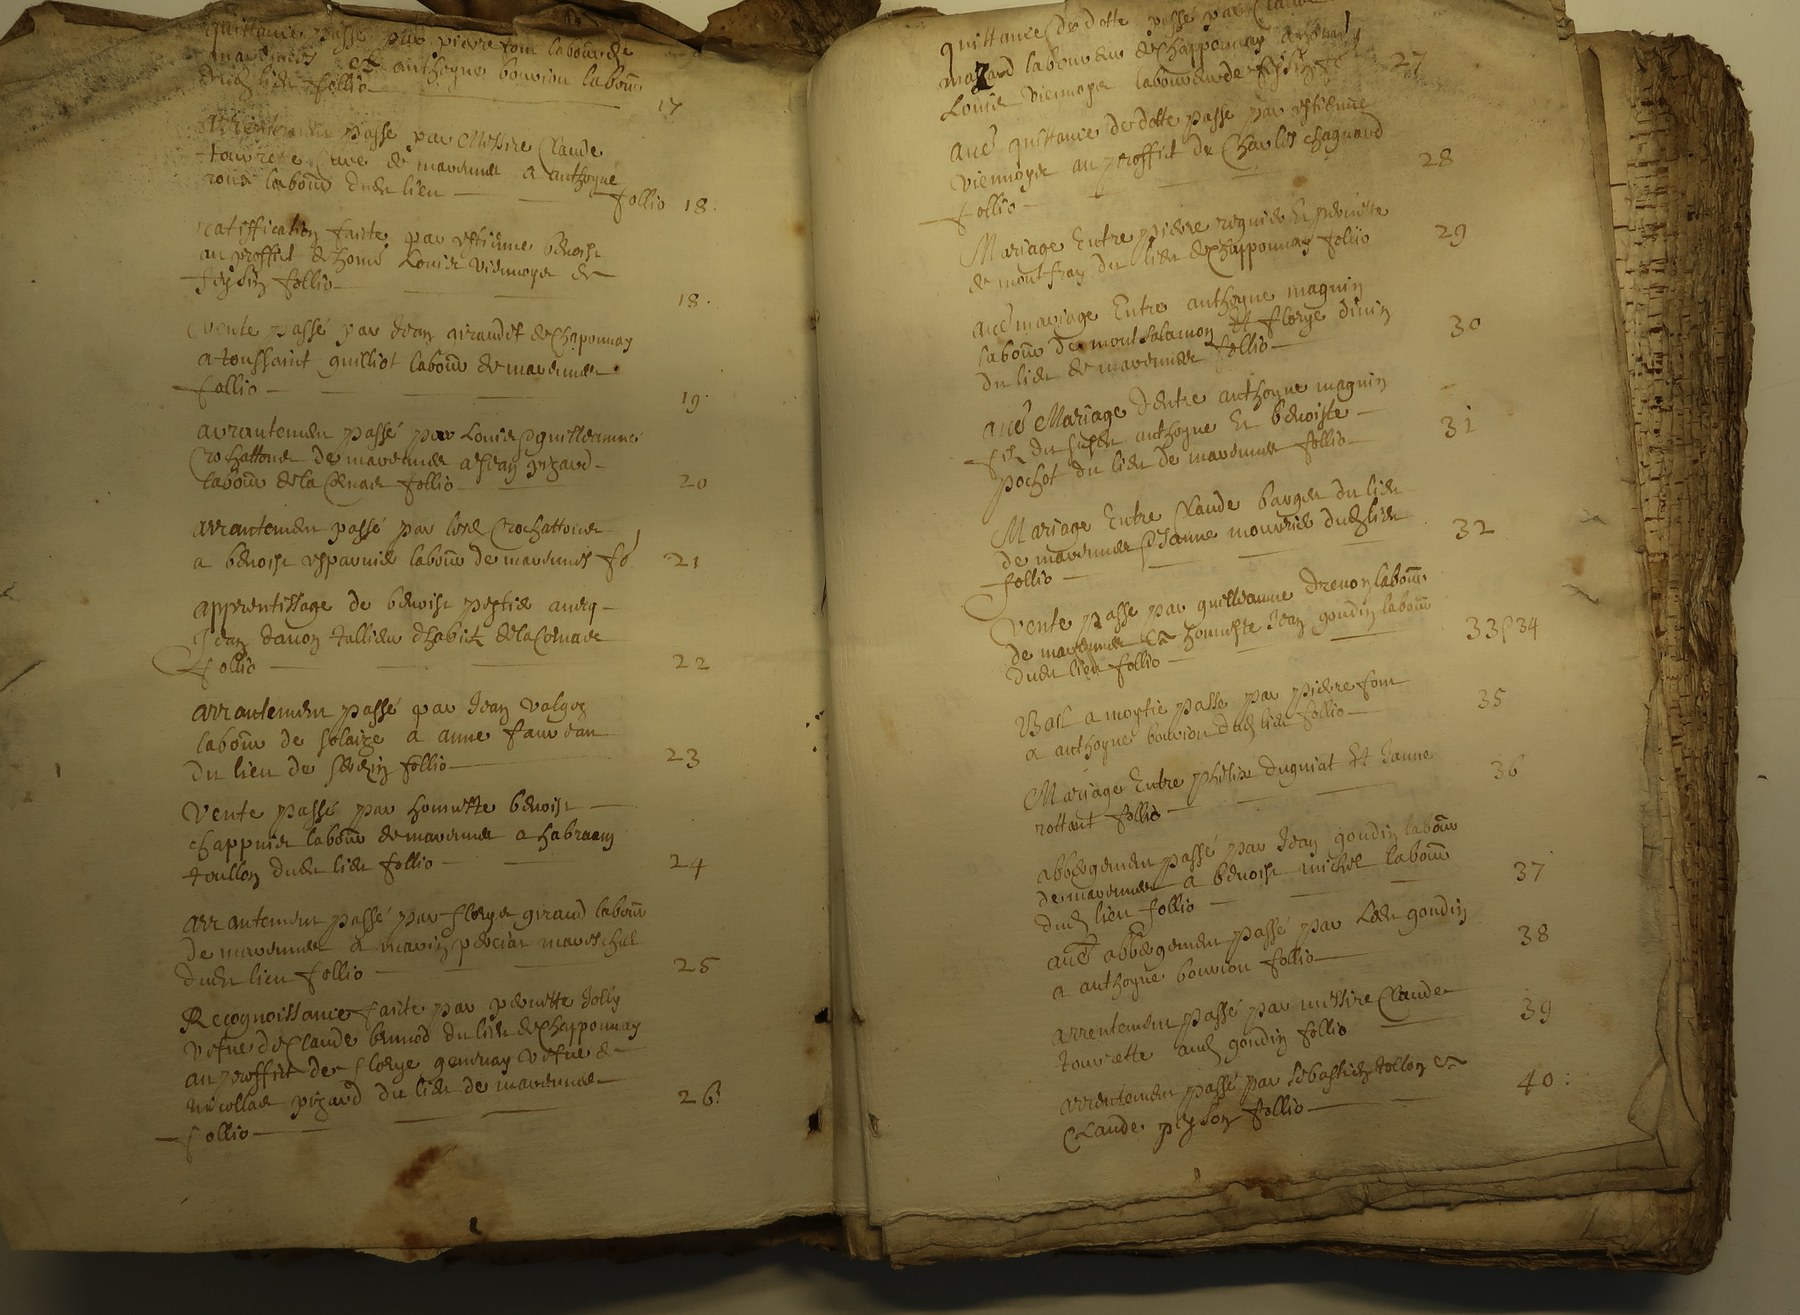 quittance passé par pierre font laboure de
marennes et anthoyne bouvion labour
dud lieu follio 17
passé par Messire Claude
tourrete Cure de marennes a anthoyne
labour dud lieu follio 18
ratiffication faite par estienne benoist
au proffict de home Louis viennoys de
feysin follio 18
Vente passé par Jean giraudet de Chaponnay
a toussaint guilliot labour de marennes
follio 19
arrantement passé par Louis & guilleaume
Crochattons de marennes a Jean pizard
labour de la follio 20
arrantement passé par les Crochattons
a benoist esparnie labour de marennes fo 21
apprentissage de benoist avecq
Jean tallieur dhabitz
follio 22
arrantement passé par Jean
labour de solaize a anne
du lieu de follio 23
Vente passé par honneste benoist
chappuis labour de marennes a habraam
toullon dud lieu follio 24
arrantement passé par floryes giraud labour
de marennes a marin mareschal
dud lieu follio 25
Recognoissance faite par pernette Jolly
vefve de Claude du lieu de Chapponnay
au proffict de florye vefve de
nicollas pizard du lieu de marennes
follio 26
quittance de dotte passé par Claude
labour de Chapponnay
Louis viennoys labour de feysin fo 27
autre quittance de dotte passé par estienne
viennoys au proffict de Charles chagnard
follio 28
Mariage Entre pierre Et pernette
de montfray du lieu de Chapponnay follio 29
autre mariage Entre anthoyne magnin
labour de mont salamon Et florye divin
du lieu de marennes follio 30
autre Mariage dentre anthoyne magnin
filz du susd anthoyne Et benoiste
pochot du lieu de marennes follio 31
Mariage Entre Claude barges du lieu
de marennes & Janne dud lieu
follio 32
Vente passé par guilleaume drevon labour
de marennes a honneste Jean goudin labour
dud lieu follio 33 & 34
Bail a moytie passé par pierre font
a anthoyne bouvion dud lieu follio 35
Mariage Entre phelix duguiat Et Janne
rottant follio 36
abbergement passé par Jean goudin labour
de marennes a benoist michel labour
dud lieu follio 37
autre abbergement passé par led goudin
a anthoyne bouvion follio 38
arrentement passé par messire Claude
tourrette aud goudin follio 39
arrentement passé par sebastien tollon a
Claude follio 40